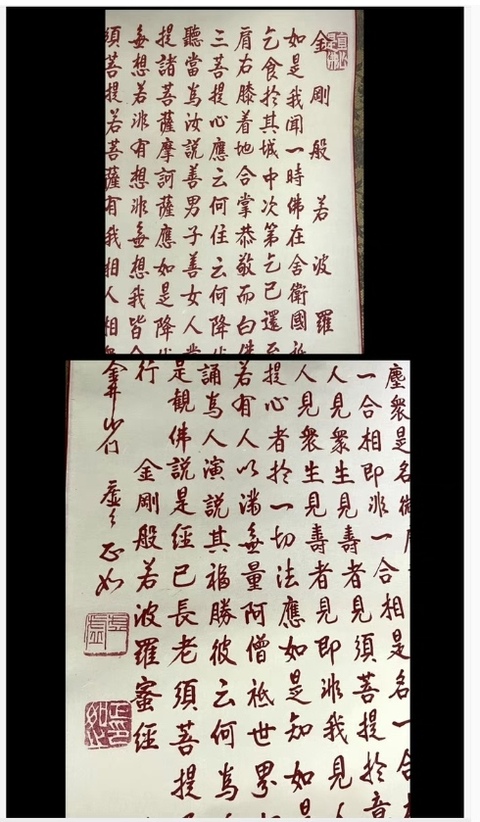 金剛般若波羅
如是我聞一時佛在舍衛國
乞食於其城中次第乞已還至
肩右膝着地合掌恭敬而白佛
三菩提心應云何住云何降
聽當為汝說善男子善女人
提諸菩薩摩訶薩應如是降
無想若非有想非無想我皆
須菩提若菩薩有我相人相
塵衆是名微
一合相即非一合相是名一合
人見衆生見壽者見須菩提於意
人見衆生見壽者見即非我見人
提心者於一切法應如是知如是
若有人以滿無量阿僧祇世界
誦為人演說其福勝彼云何為
是觀佛說是經已長老須菩提
金剛般若波羅蜜經